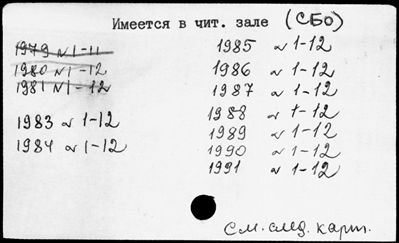 Имеется в чит. зале (СБО)
1979 № 1-11
1980 № 1-12
1981 № 1-12
1983 № 1-12
1984 № 1-12
1985 № 1-12
1986 № 1-12
1987 № 1-12
1988 № 1-12
1989 № 1-12
1990 № 1-12
1991 № 1-12
См. след. карт.